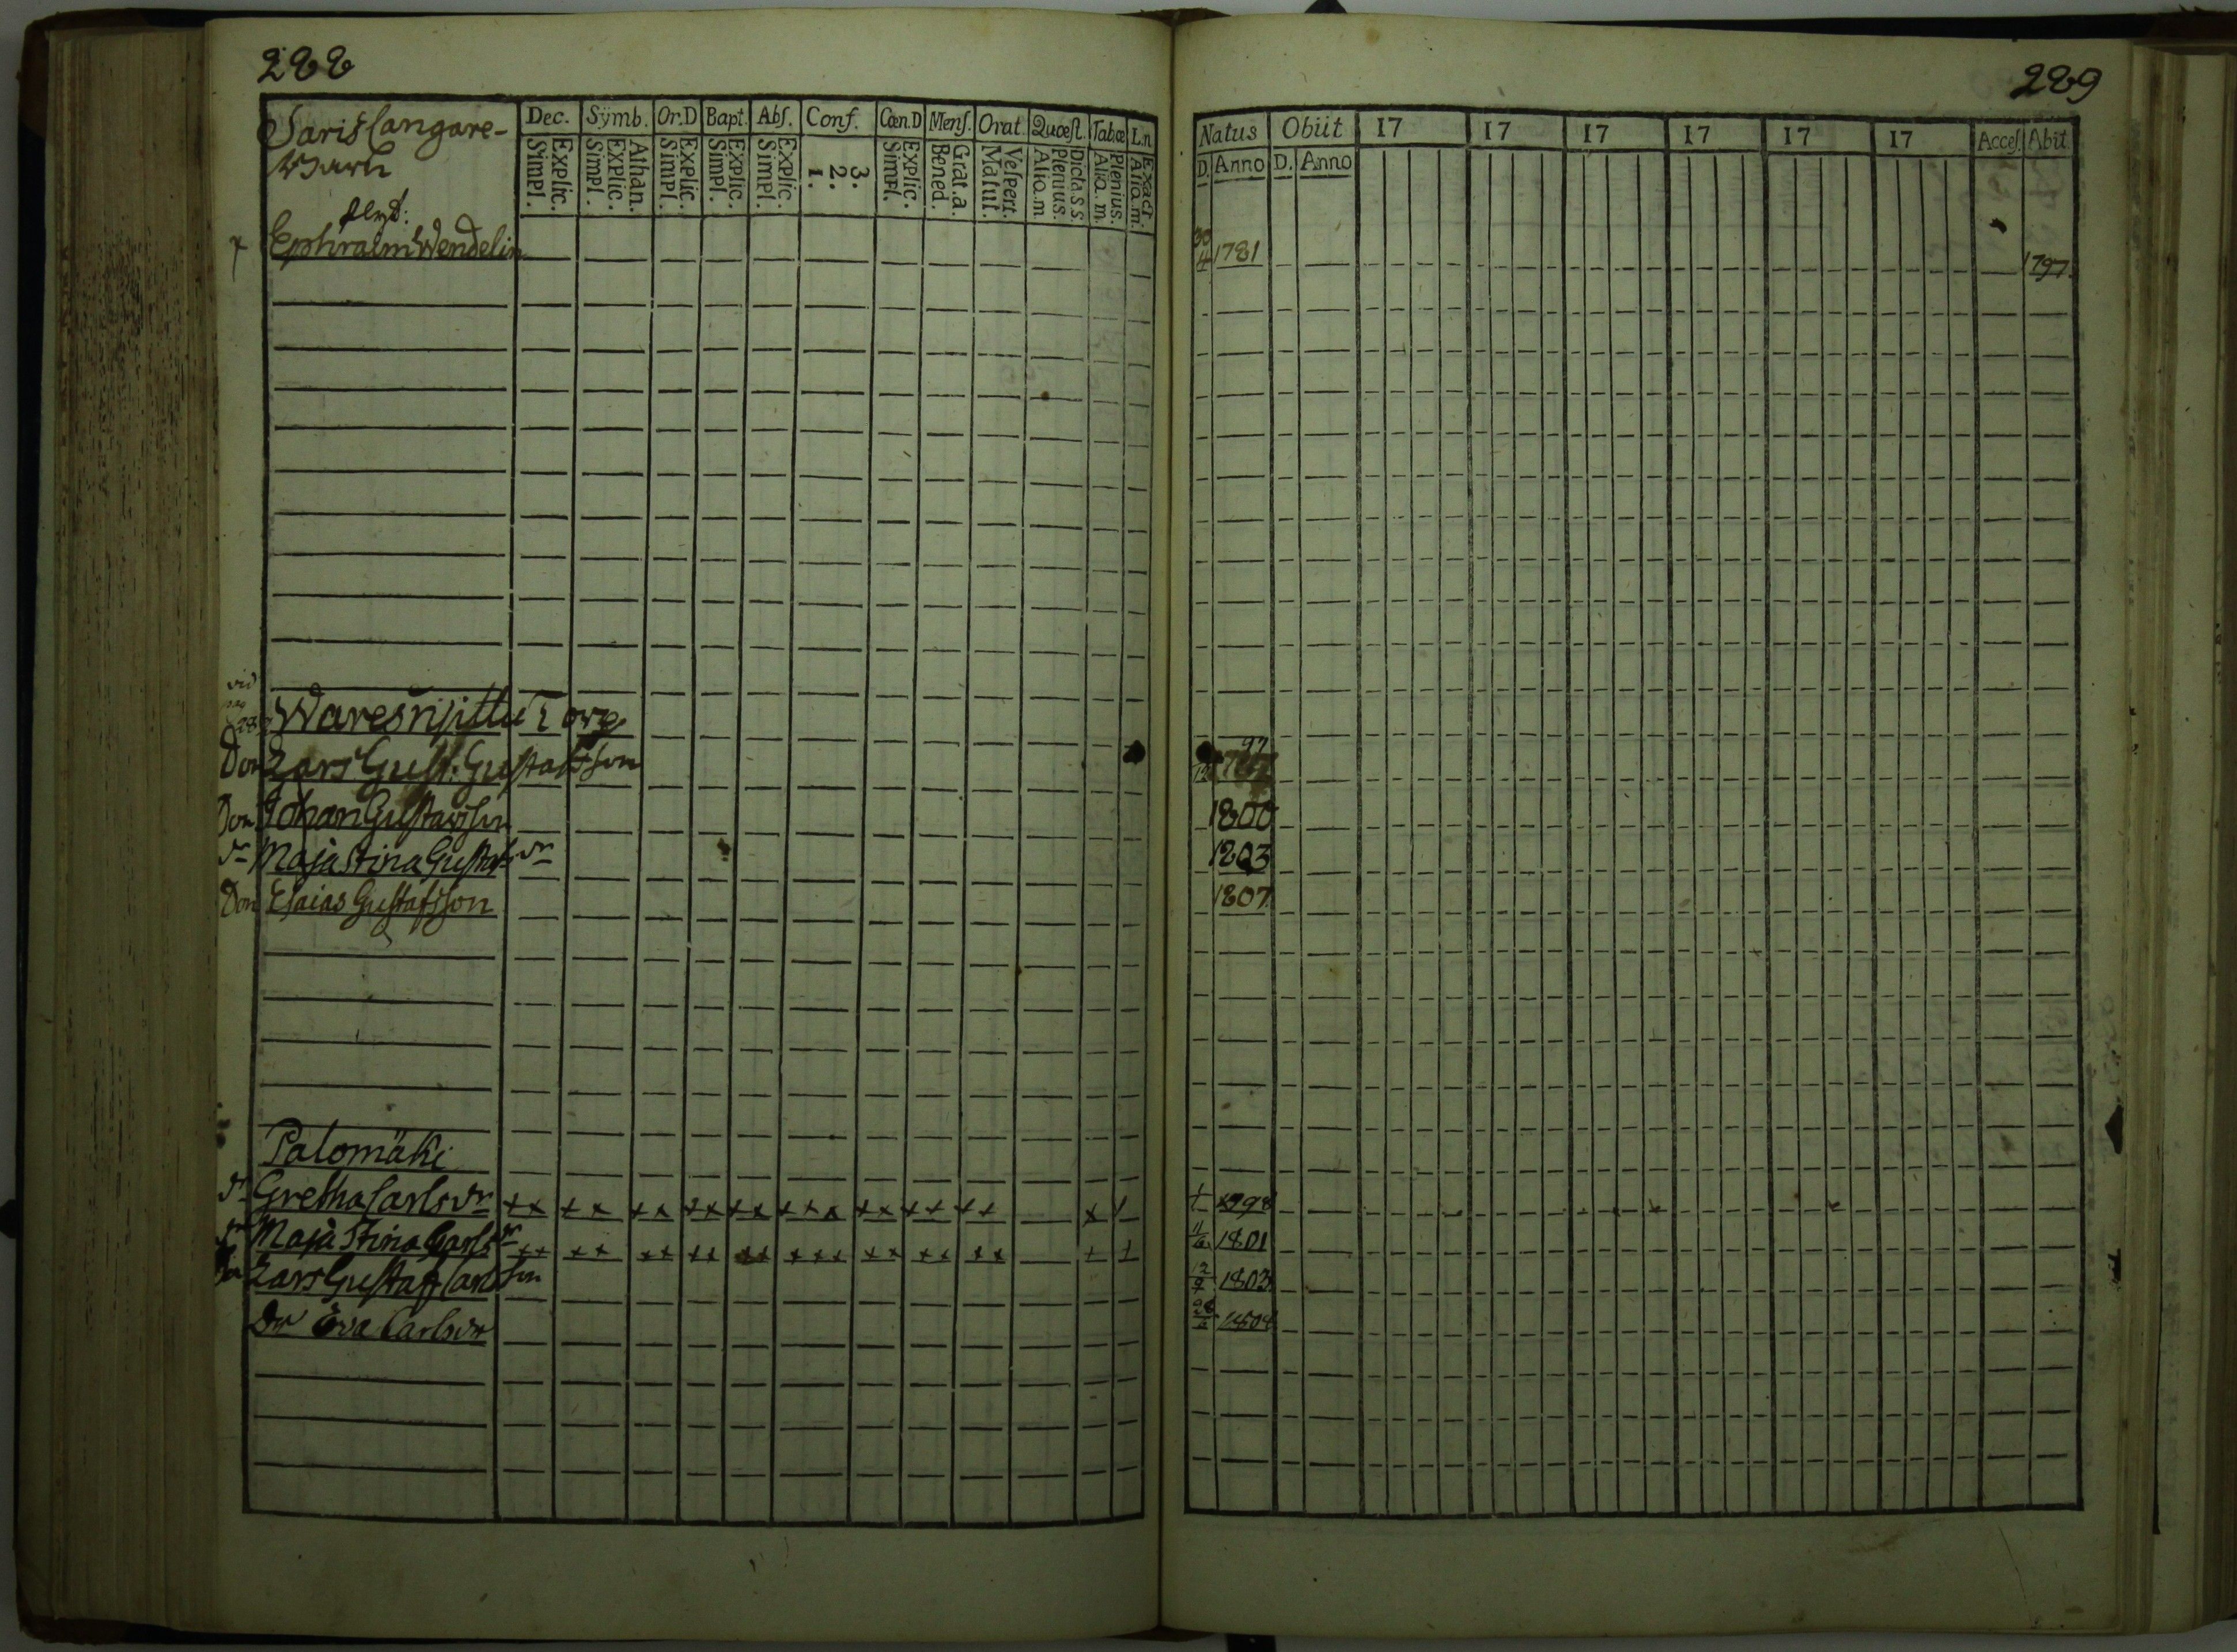 288
Dec. Symb. Or.D Bapt. Abſ. Conf. Cœn.D Menſ. Orat. Quœſt. Tabœ L.n
Explic. Simpl. Athan. Explic. Simpl. Explic. Simpl. Explic. Simpl. Explic. Simpl. 3. 2. 1. Explic. Simpl. Grat. a. Bened. Veſpert. Matut. Dicta s.s. Plenius. Aliq.m. Plenius. Aliq.m. Exact. Aliq.m.
Ephraim Wendelin
Torp
Don Lars Gust. Gustafsson
Don Johan Gustafsson
dr Maja Stina Gustafsdr
Don Esaias Gustafsson
Palomäki
dr Gretha Carlsdr
Maja Stina Carlsdr
Lars Gustaf Carlsson
Dr Eva Carlsdr
289
Natus Obiit 17 17 17 17 17 17 Acceſ. Abit
D. Anno D. Anno
30/4 1781 1797.
1800
1803
1807
1/1 1798
1801
12/9 1803
1808